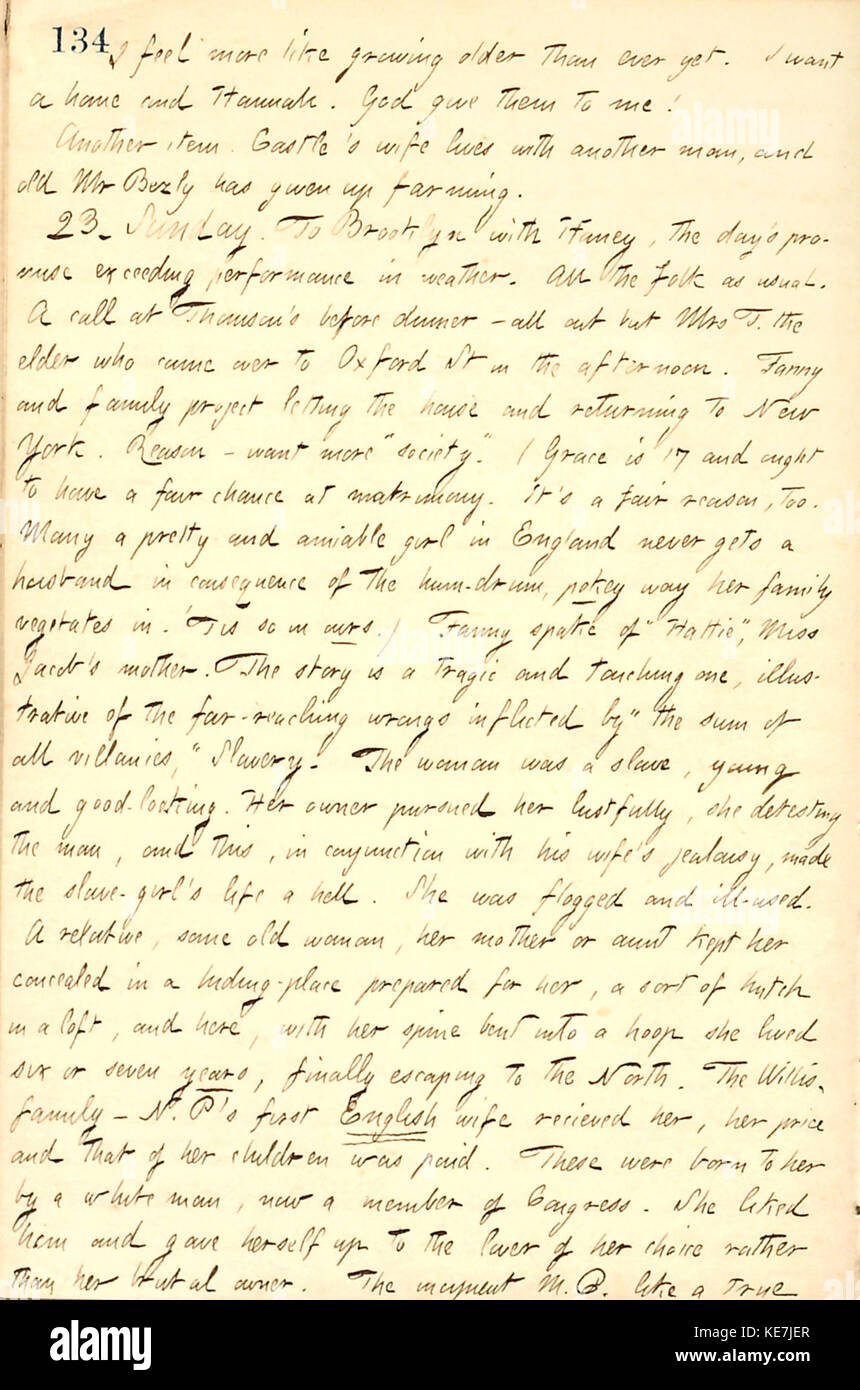 134
I feel more like growing older than ever yet. I want
a home and Hannah. God give them to me!
Another item. Castle's wife lives with another man, and
old Mr Bezly has given up farming.
23. Sunday. To Brooklyn with Haney, the day's pro-
mise exceeding performance in weather. All the folk as usual.
A call at Thomson's before dinner — all out but Mrs T. the
elder who came over to Oxford St in the afternoon. Fanny
and family project letting the house and returning to New
York. Reason — want more "society." (Grace is 17 and ought
to have a fair chance at matrimony. It's a fair reason, too.
Many a pretty and amiable girl in England never gets a
husband in consequence of the hum-drum, pokey way her family
vegetates in. 'Tis so in ours.) Fanny spake of "Hattie", Miss
Jacob's mother. The story is a tragic and touching one, illus-
trative of the far-reaching wrongs inflicted by "the sum of
all villanies," Slavery. The woman was a slave, young
and good-looking. Her owner pursued her lustfully, she detesting
the man, and this, in conjunction with his wife's jealousy, made
the slave-girl's life a hell. She was flogged and ill-used.
A relative, some old woman, her mother or aunt kept her
concealed in a hiding-place prepared for her, a sort of hutch
in a loft, and here, with her spine bent into a hoop she lived
six or seven years, finally escaping to the North. The Willis-
family — N. P's first English wife recieved her, her price
and that of her children was paid. These were born to her
by a white man, now a member of Congress. She liked
him and gave herself up to the lover of her choice rather
than her brutal owner. The incipient M.C. like a true
alamy
Image ID: KE7JER
www.alamy.com